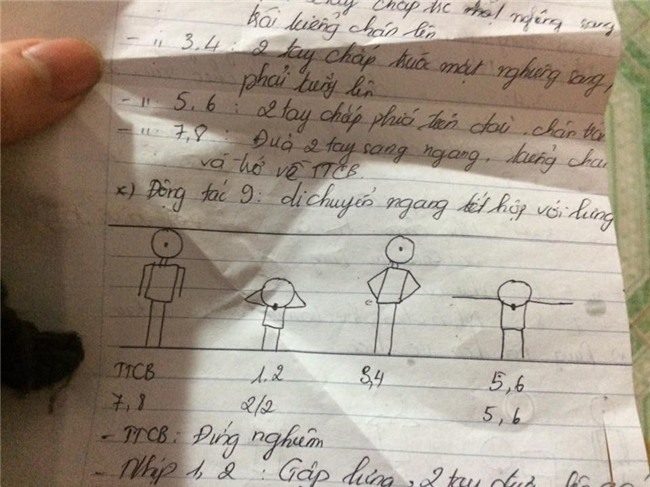 tay chấp sang
trái kiễng chân lên
- " 3,4 : 2 tay chấp trước mặt nghiêng sang
phải kiễng lên
- " 5,6 : 2 tay chấp phía trên đầu, chân
- " 7,8 : Đưa 2 tay sang ngang, kiễng chân
và trở về TTCB
x) Động tác 9: di chuyển ngang kết hợp với lưng
TTCB 1,2 3,4 5,6
7,8 2/2 5,6
- TTCB: Đứng nghiêm
- Nhịp 1, 2 : Gập lưng, 2 tay đưa